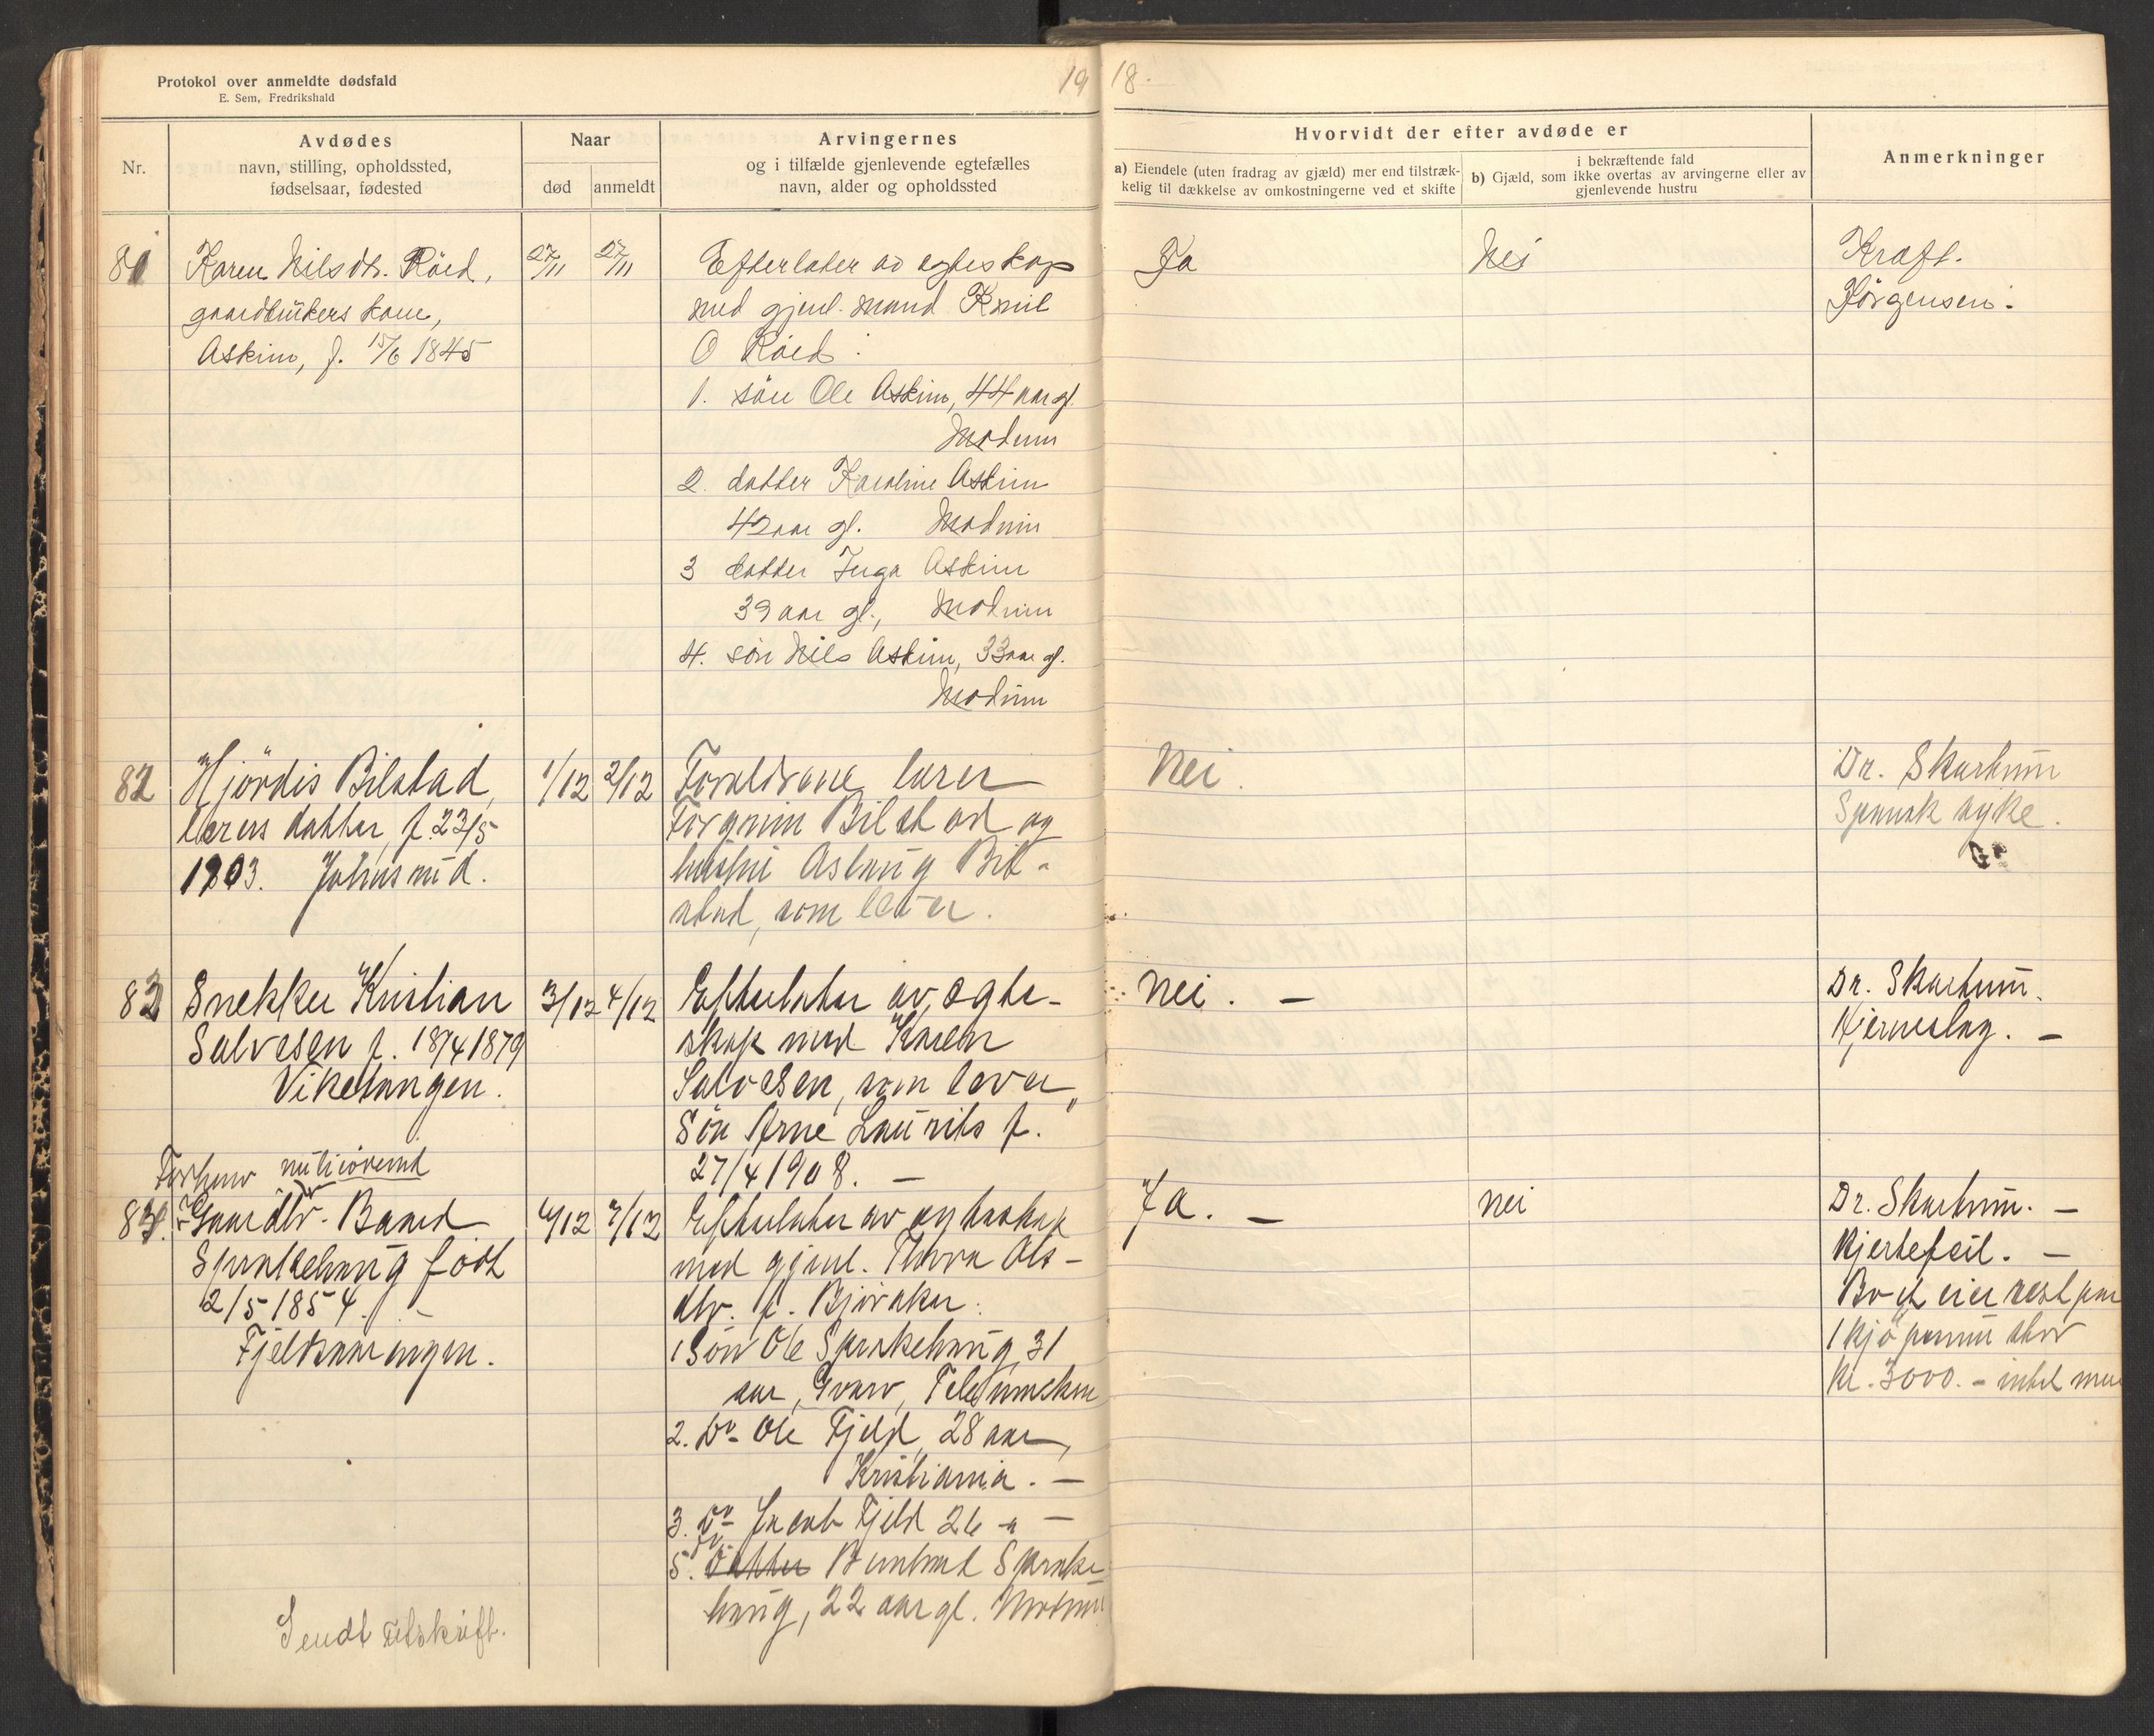 Protokol over anmeldte dødsfald
E. Sem, Fredrikshald
19 18.
Nr.
Avdødes
navn, stilling, opholdssted,
fødselsaar, fødested
Naar
død
anmeldt
Arvingernes
og i tilfælde gjenlevende egtefælles
navn, alder og opholdssted
Hvorvidt der efter avdøde er
a) Eiendele (uten fradrag av gjæld) mer end tilstræk-
kelig til dækkelse av omkostningerne ved et skifte
i bekræftende fald
b) Gjæld, som ikke overtas av arvingerne eller av
gjenlevende hustru
Anmerkninger
81
Karen Nilsdt. Röed,
gaardbrukers kone,
Askim, f. 15/6 1845
27/11
27/11
Efterlater av egteskap
med gjenl. mand
O Röed :
1. sön Ole Askim, 44 aar gl.
Modum
2. datter Karoline Askim
42 aar gl. Modum
3 datter Inga Askim
39 aar gl., Modum
4. sön Nils Askim, 33 aar gl.
Modum
Ja
Nei
Kraft.
Jörgensen.
82
Hjördis Bilstad,
lærers datter, f. 23/5
1903.
1/12
2/12
Forældrene lærer
Torgrim Bilstad og
hustru Aslaug Bil-
stad, som lever.
Nei.
Dr. Skarhum
Spansk syke.
83
Snekker Kristian
Salvesen f. 18/4 1879
Viketangen.
3/12
4/12
Efterlater av egte-
skap med Karen
Salvesen, som lever,
Sön Arne Laurits f.
27/4 1908. —
Nei. —
Dr. Skarhum.
Hjerneslag. —
84.
Gaardbr. Baard
Sprakehaug född
2/5 1854. —
7/12
Efterlater av egteskap
med gjenl. Thora Ols-
dtr. f. Björaker:
1 Sön Ole Sprakehaug, 31
aar, Gvarv, Telemarken
2. Do Ole Fjeld, 28 aar,
Kristiania. —
3. Do Jacob Fjeld 26 a —
5. Datter Bernhard Sprake
haug, 22 aar gl. Modum
Ja. —
Nei
Dr. Skarhum. —
Hjertefeil. —
Boet eier rest paa
1 kjöpesum stor
kr. 3000. — intet mer
Sendt Utskrift.